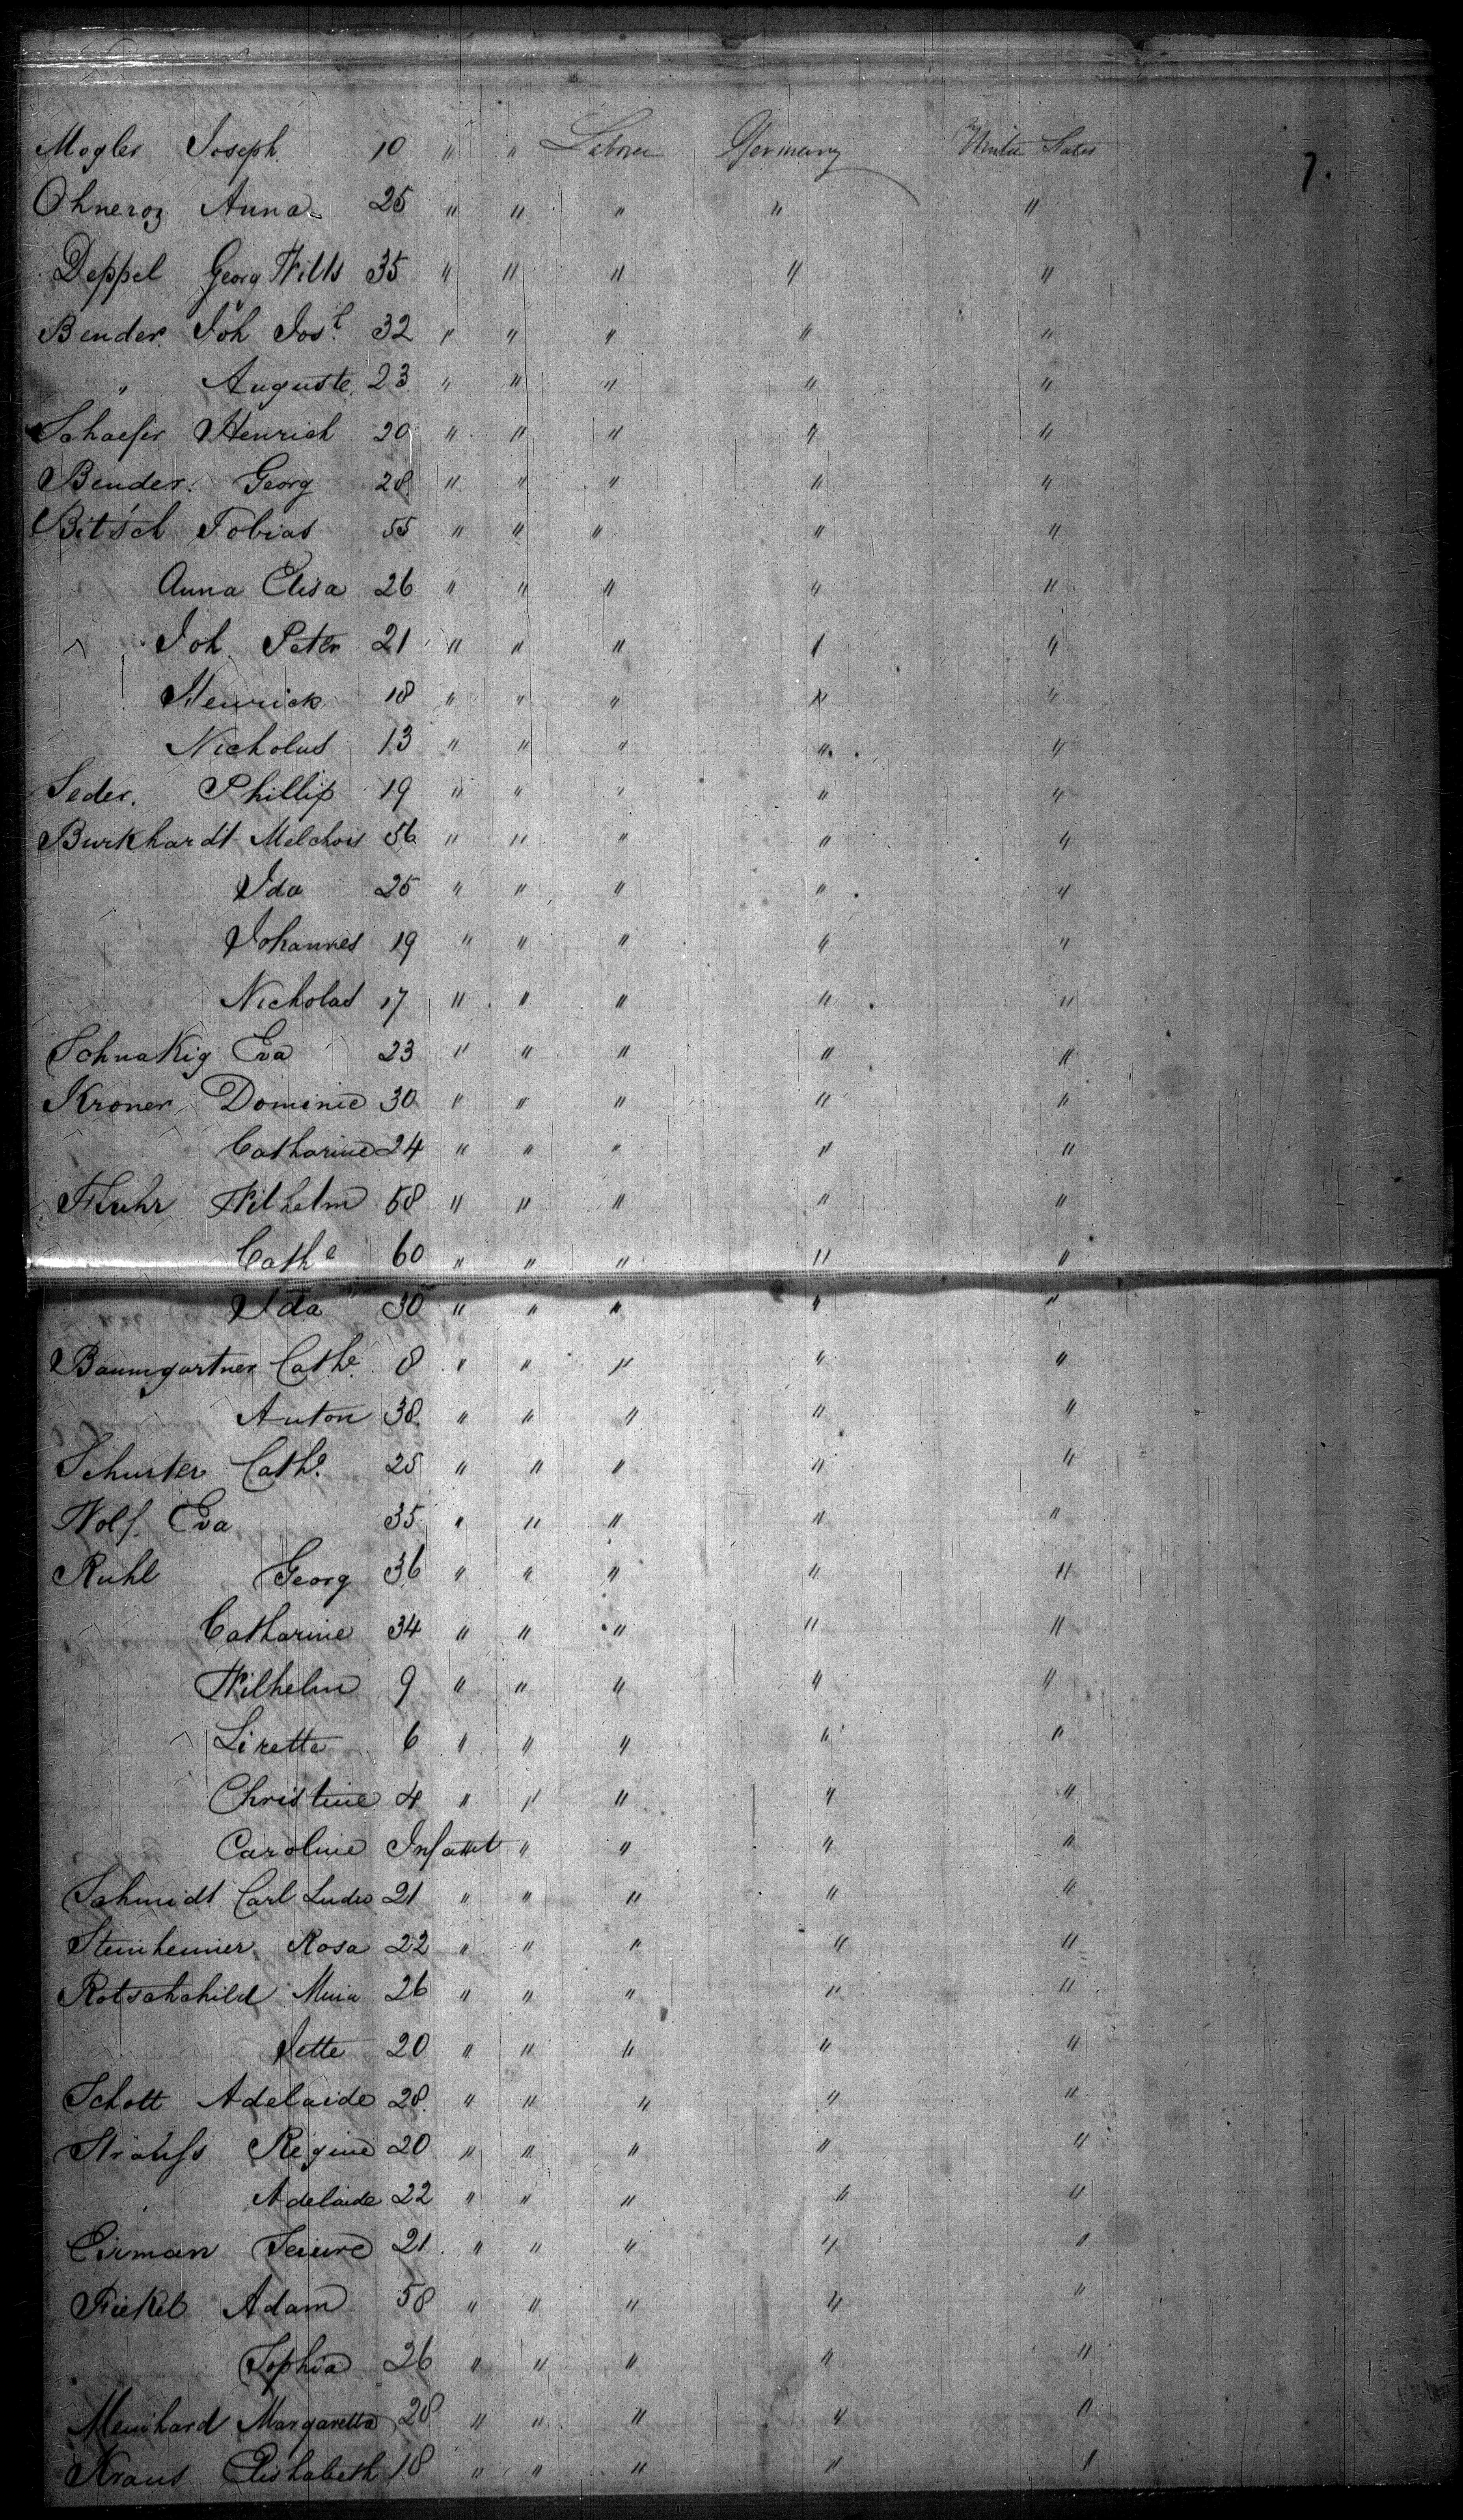 Mogler Joseph 10 " " Laborer Germany United States 7.
Ohneroz Anna 25 " " " " "
Deppel Georg Wills 35 " " " " "
Bender Joh Jos 32 " " " " "
" Auguste 23 " " " " "
Schaefer Henrich 20 " " " " "
Bender Georg 28 " " " " "
Bitsch Tobias 55 " " " " "
Anna Elisa 26 " " " " "
Joh Peter 21 " " " " "
Henrick 18 " " " " "
Nicholus 13 " " " " "
Seder. Phillip 19 " " " " "
Burkhardt Melchior 56 " " " " "
Ida 25 " " " " "
Johannes 19 " " " " "
Nicholas 17 " " " " "
Schnakig Eva 23 " " " " "
Kroner Dominic 30 " " " " "
Catharine 24 " " " " "
Fluhr Wilhelm 58 " " " " "
Cathe 60 " " " " "
Ida 30 " " " " "
Baumgartner Cathe 8 " " " " "
Anton 38 " " " " "
Schuster Cathe 25 " " " " "
Wolf Eva 35 " " " " "
Ruhl Georg 36 " " " " "
Catharine 34 " " " " "
Wilhelm 9 " " " " "
Lirette 6 " " " " "
Christine 4 " " " " "
Caroline Infant " " " "
Schmidt Carl Ludw 21 " " " " "
Steinheimer Rosa 22 " " " " "
Rotschchild 26 " " " " "
Jette 20 " " " " "
Schott Adelaide 28 " " " " "
Strauss Regine 20 " " " " "
Adelaide 22 " " " " "
Eirman 21 " " " " "
Fickel Adam 58 " " " " "
Sophia 26 " " " " "
Meinhard Margaretta 28 " " " " "
Kraus Elishabeth 18 " " " " "